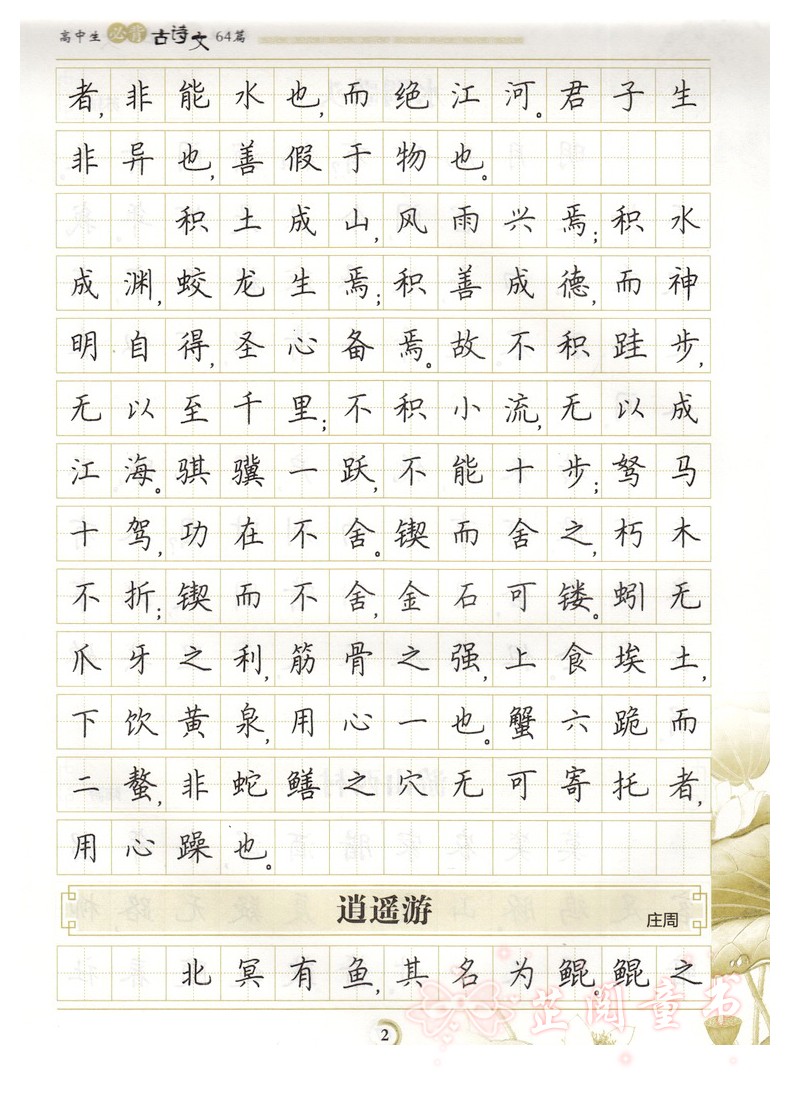 高中生必背古诗文64篇
者,非能水也,而绝江河。君子生
非异也,善假于物也。
积土成山,风雨兴焉;积水
成渊,蛟龙生焉;积善成德,而神
明自得,圣心备焉。故不积跬步,
无以至千里;不积小流,无以成
江海。骐骥一跃,不能十步;驽马
十驾,功在不舍。锲而舍之,朽木
不折;锲而不舍,金石可镂。蚓无
爪牙之利,筋骨之强,上食埃土,
下饮黄泉,用心一也。蟹六跪而
二螯,非蛇鳝之穴无可寄托者,
用心躁也。
逍遥游
庄周
北冥有鱼,其名为鲲。鲲之
芷阅童书
2